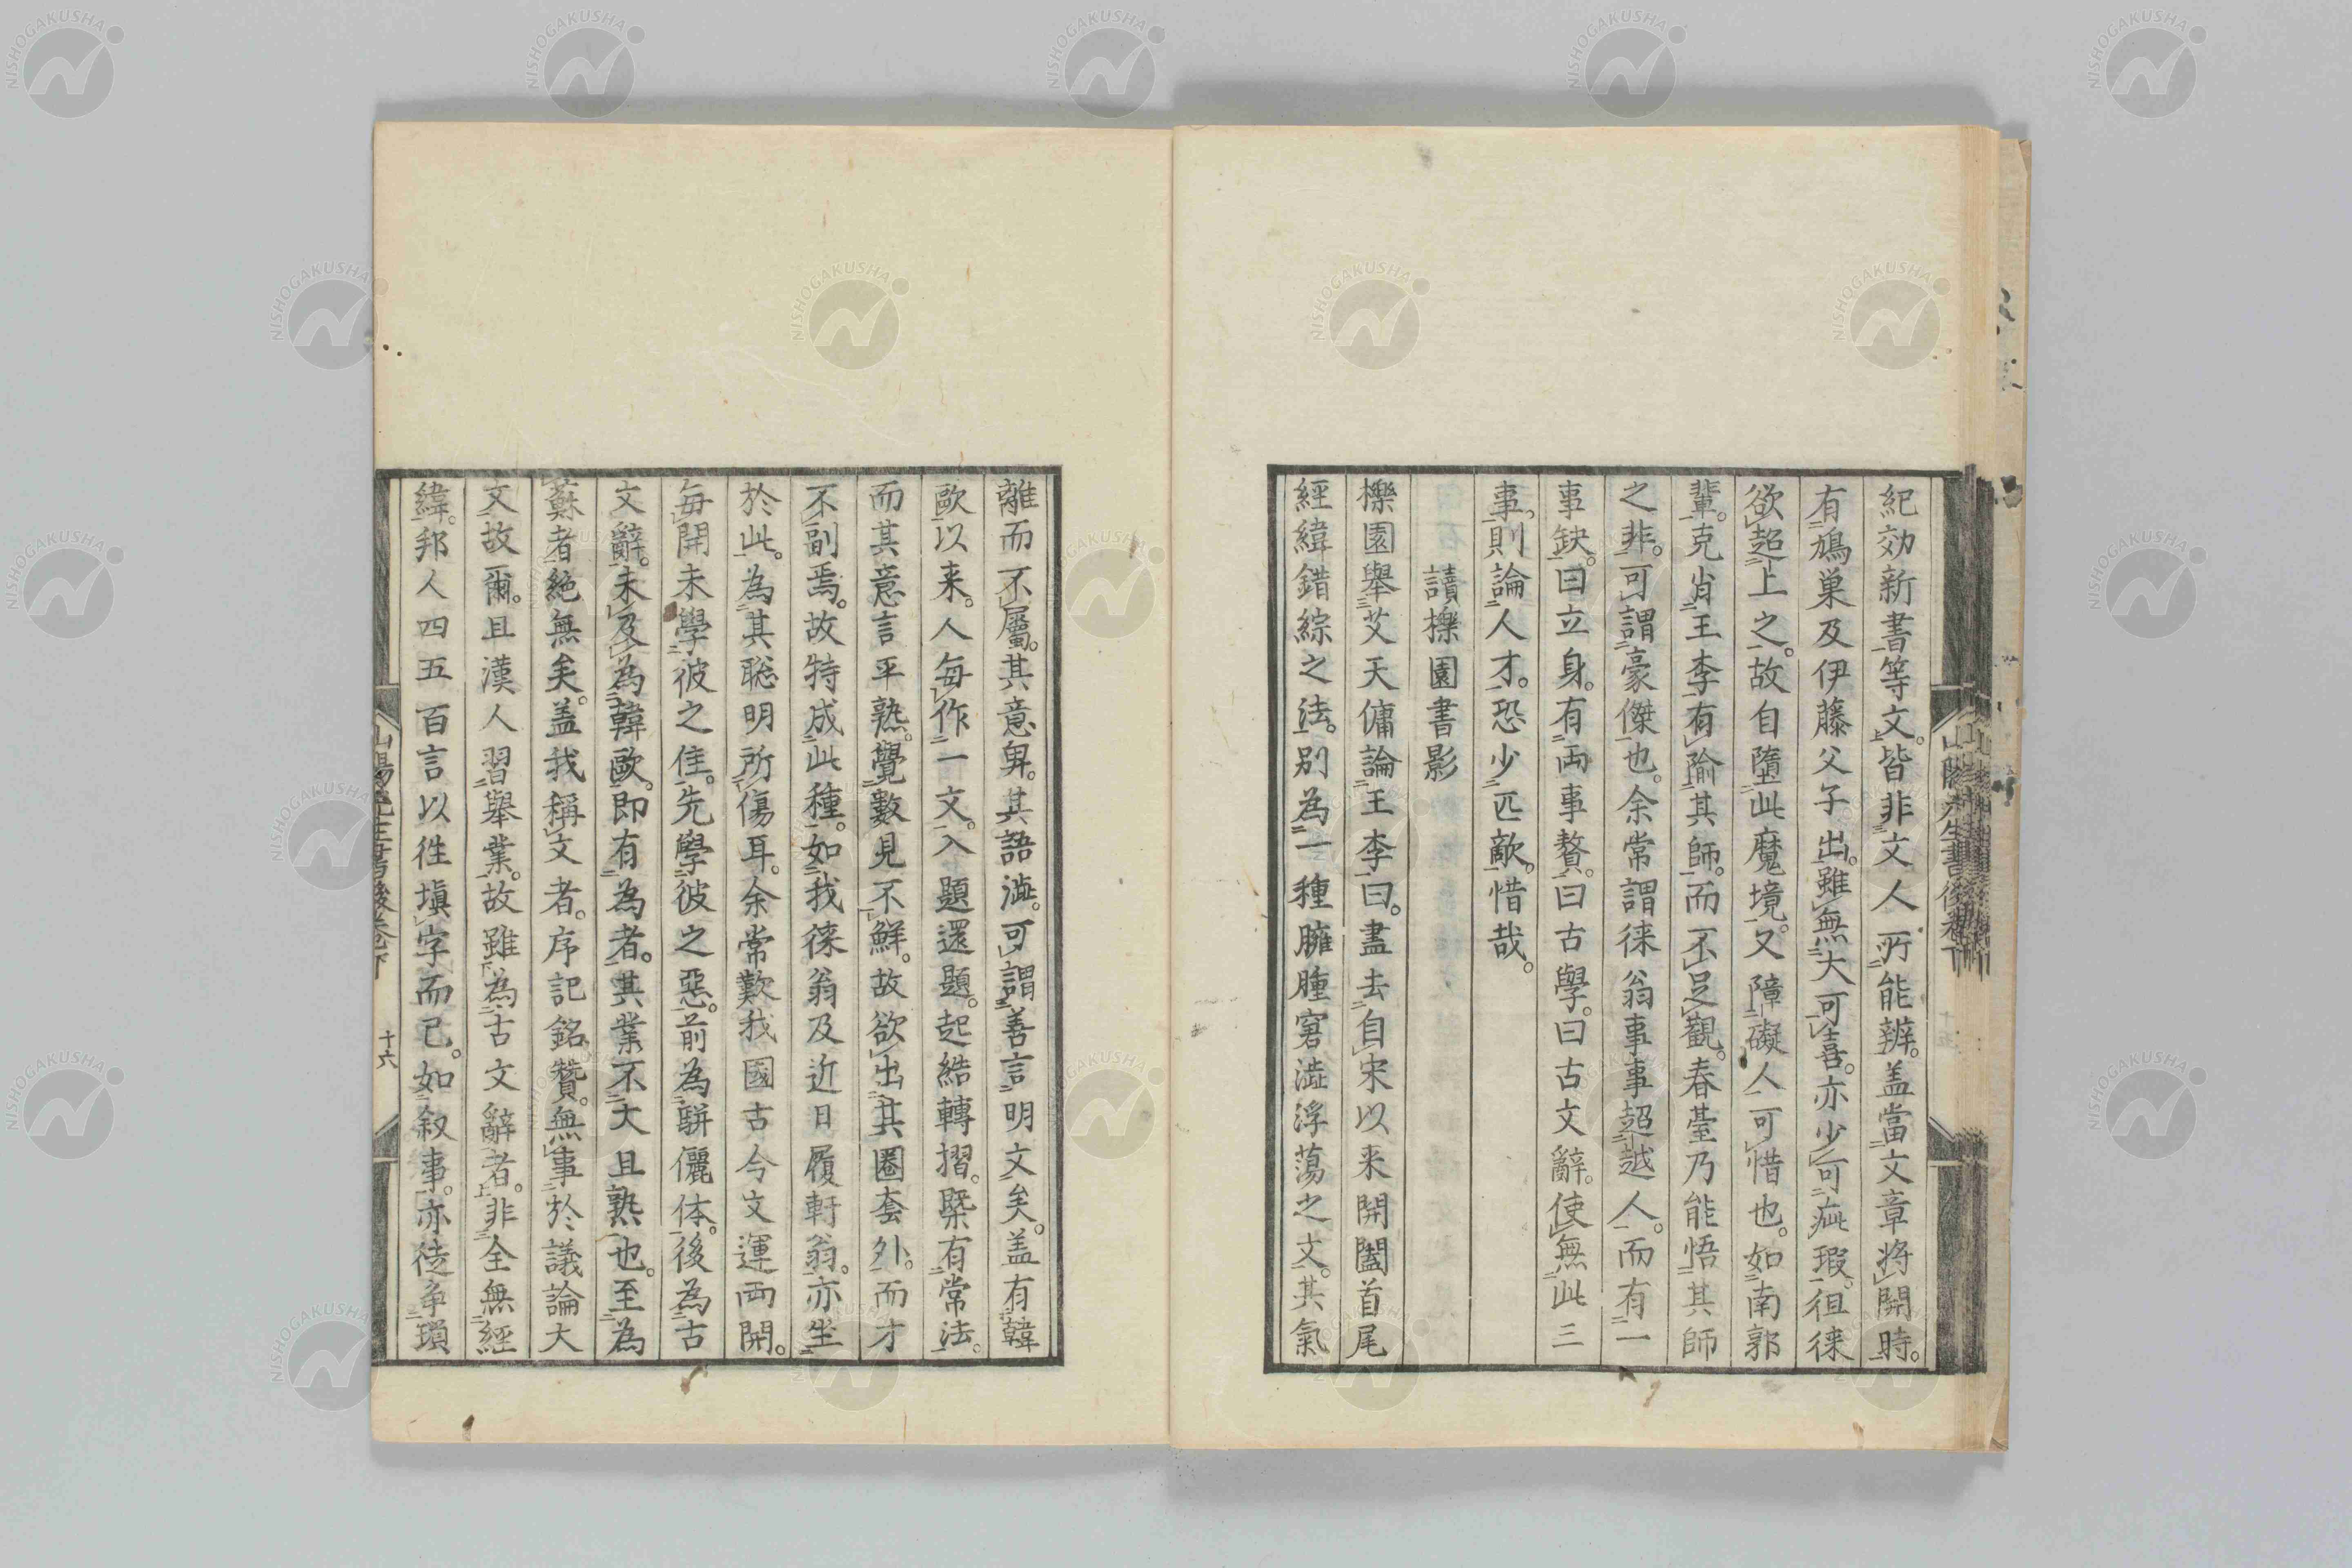 紀効新書等文。皆非文人所能辨。盖當文章將開時。
有鳩巢及伊藤父子出。雖無大可喜。亦少可疵瑕。徂徠
欲超上之。故自墮此魔境。又障礙人。可惜也。如南郭
輩。克肖王李。有隃其師。而不足觀。春臺乃能悟其師
之非。可謂豪傑也。余常謂徠翁事事超越人。而有一
事缺。曰立身。有両事贅。曰古學。曰古文辭。使無此三
事。則論人才。恐少匹敵。惜哉。
讀櫟園書影
櫟園舉艾天傭論王李曰。盡去自宋以来開闔首尾
經緯錯綜之法。別為一種臃腫窘澁浮蕩之文。其氣
離而不屬。其意卑。其語澁。可謂善言明文矣。盖有韓
歐以来。人每作一文。入題還題。起結轉摺。槩有常法。
而其意言平熟。覺數見不鮮。故欲出其圈套外。而才
不副焉。故特成此種。如我徠翁及近日履軒翁。亦坐
於此。為其聡明所傷耳。余常歎我國古今文運両開。
每開未學彼之佳。先學彼之惡。前為駢儷体。後為古
文辭。未及為韓歐。即有為者。其業不大且熟也。至為
蘇者絶無矣。盖我稱文者。序記銘贊。無事於議論大
文故爾。且漢人習舉業。故雖為古文辭者。非全無經
緯。邦人四五百言以徃塡字而已。如叙事。亦徒爭瑣
山陽先生書後卷下
十六
山陽先生書後卷下
NISHOGAKUSHA